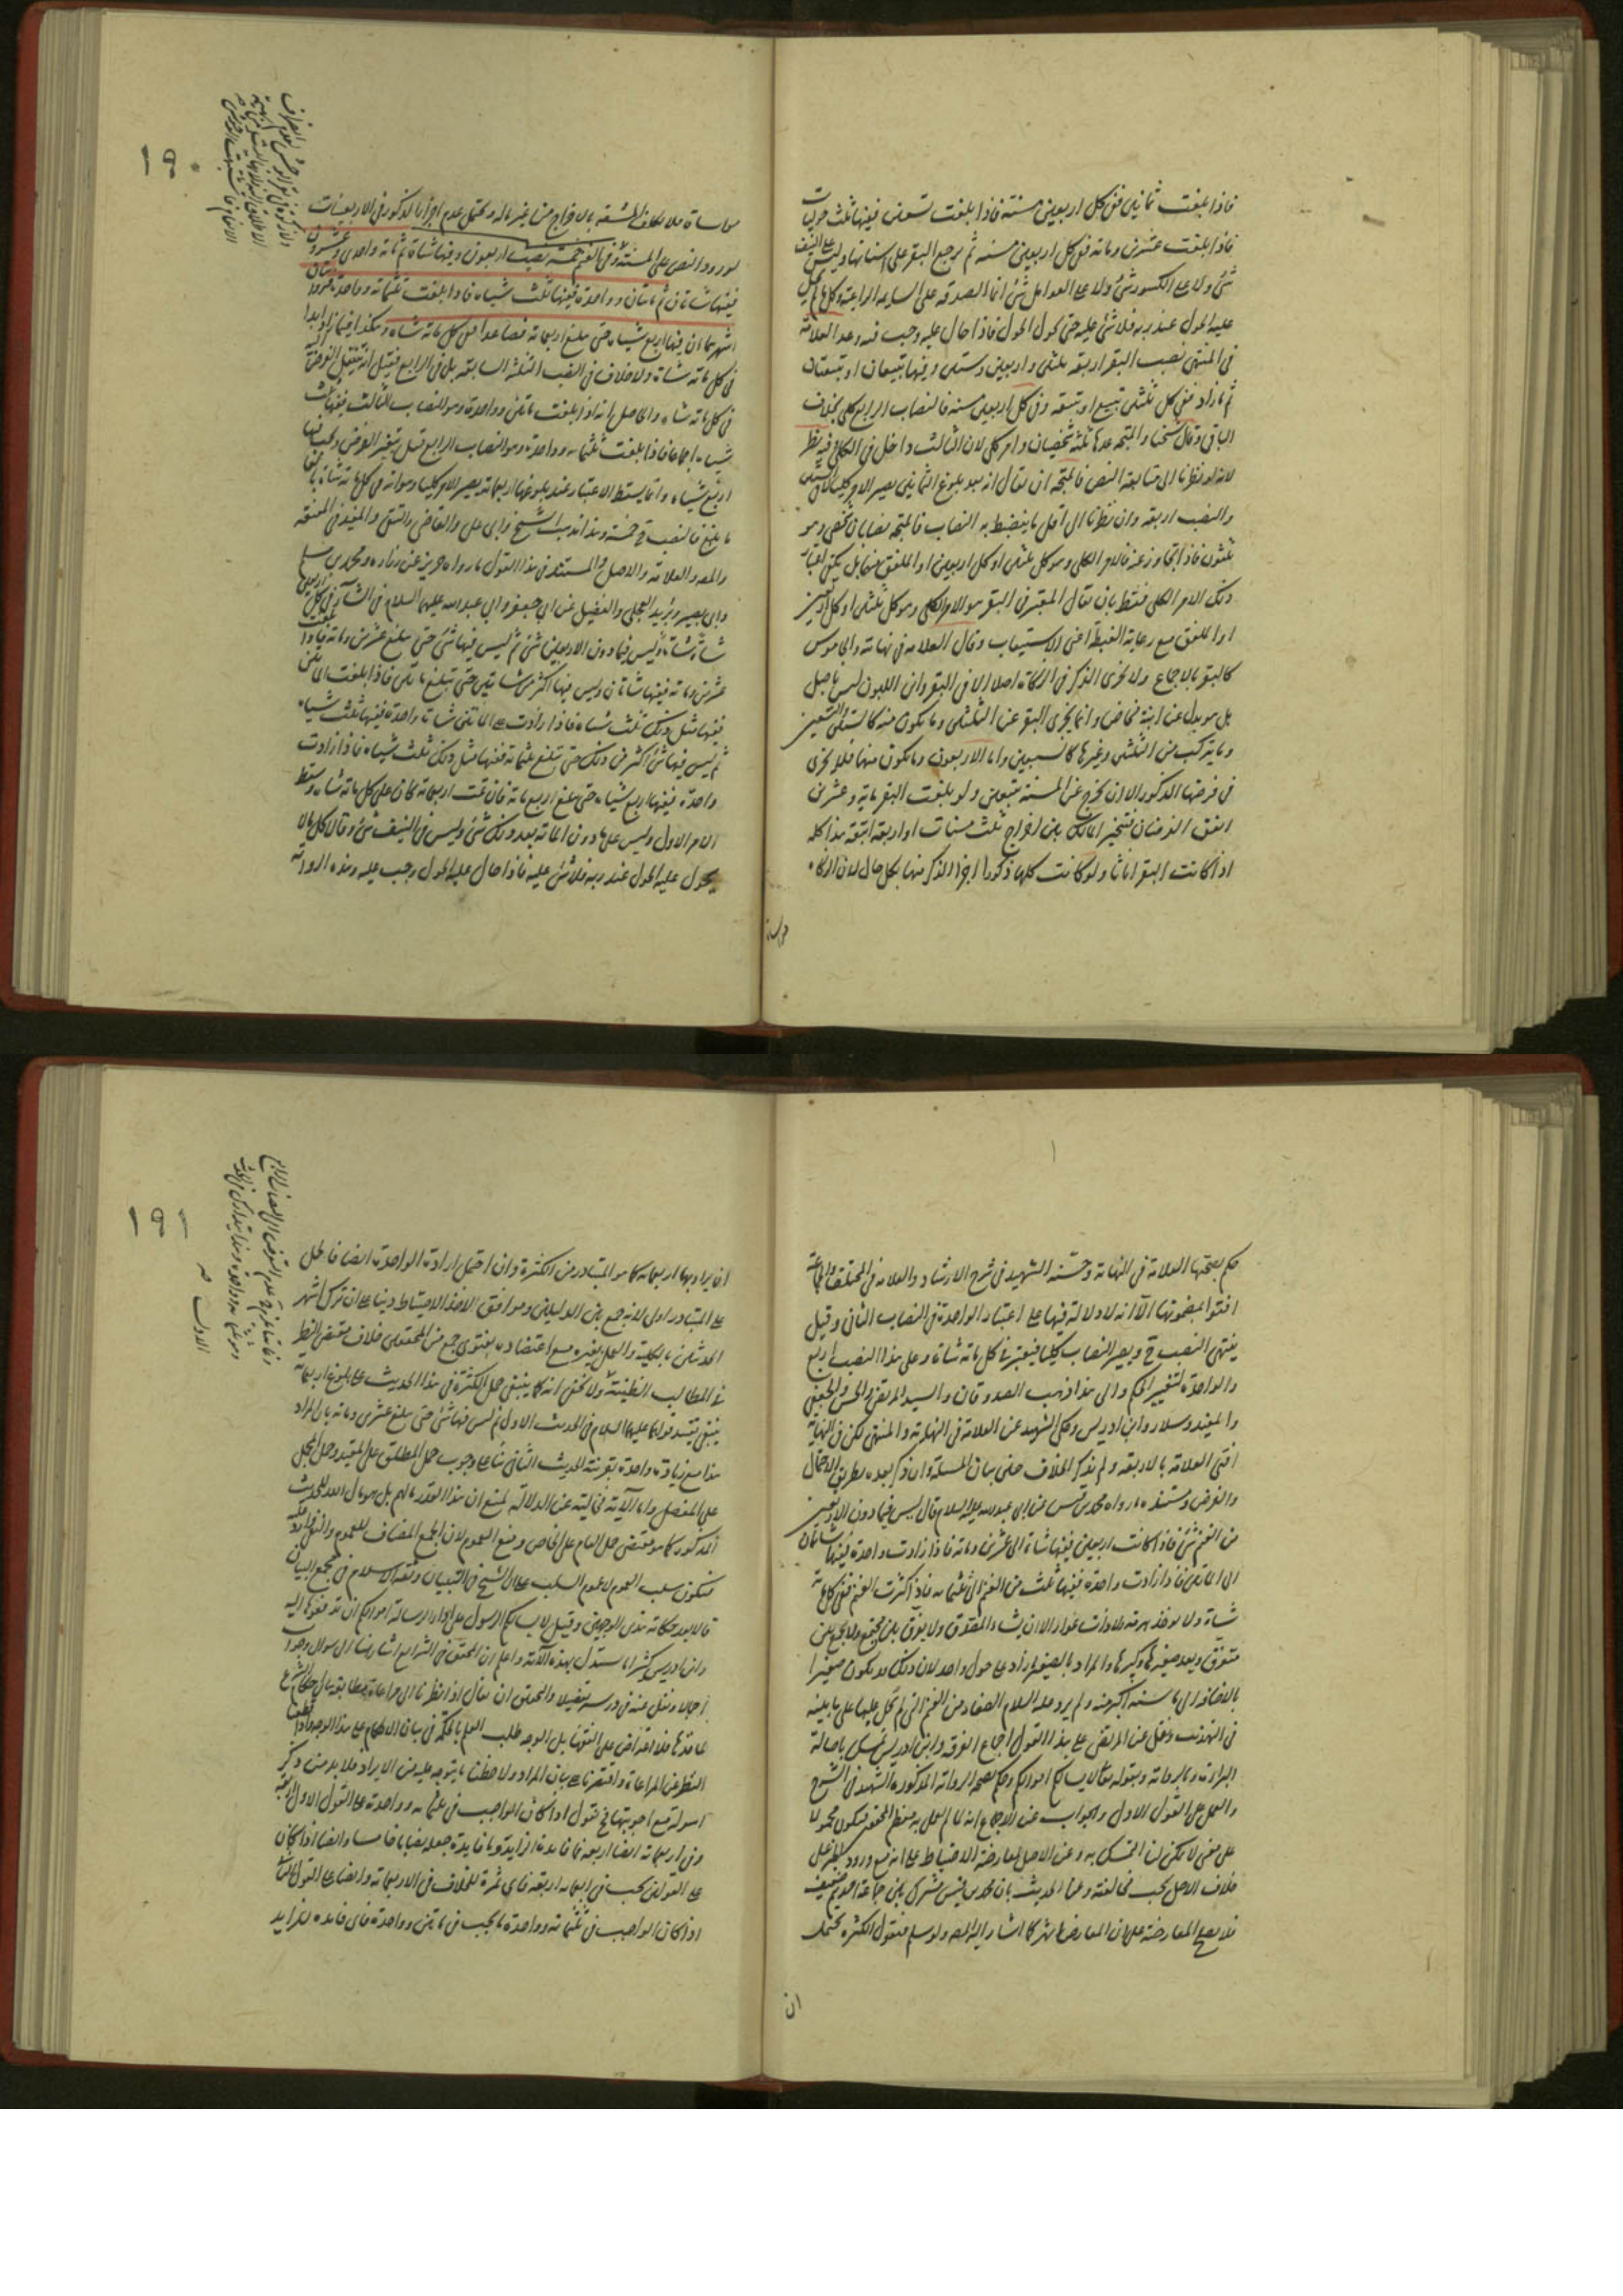 فاذا بلغت ثمانين ففي كل اربعين مسنة فاذا بلغت تسعين ففيها ثلث حوليات
فاذا بلغت عشرين ومائة ففي كل اربعين مسنه ثم ترجع البقر على اسنانها وليس على النيف
شئ ولا على الكسور شئ ولا على العوامل شئ انما الصدقه على السايمه الراعية وكل ما لم يحل
عليه الحول عند ربه فلا شئ عليه حتى يحول الحول فاذا حال عليه وجب فيه وعد العلامة
في المنتهى نصب البقر اربعه ثلثين واربعين وستين وفيها تبيعان او تبيعتان
ثم ما زاد ففي كل ثلثين تبيع او تبيعه وفي كل اربعين مسنه فالنصاب الرابع كلي بخلاف
الباقي وقال شيخنا والمتجه عدها ثلثه شخصيان وامر كلي لان الثالث داخل في الكلي وفيه نظر
لانا لو نظرنا الى متابعة النص فالمتجه ان يقال انه بعد بلوغ الثمانين يصير الامر كليا
والنصب اربعه وان نظرنا الى اقل ما ينضبط به النصاب فالمتجه نصابان شخصي وهو
ثلثون فاذا تجاوز عنه فالامر الكلي وهو كل ثلثين او كل اربعين او الملفق منهما بل يمكن اعتبار
ذلك الامر الكلي فقط بان يقال المعتبر في البقر هو الامر الكلي وهو كل ثلثين او كل اربعين
او الملفق مع رعاية الغبطة اعنى الاستيعاب وقال العلامه في نهايته والجاموس
كالبقر بالاجماع ولا يجزى الذكر في الزكاة اصلا الا في البقر وابن اللبون ليس باصل
بل هو بدل عن ابنة مخاض وانما يجزى البقر عن الثلثين وما يكون منه كالستين والتسعين
وما يتركب من الثلثين وغيرها كالسبعين واما الاربعون وما يكون منها فلا يجزى
في فرضها الذكور الا ان يخرج عن المسنة تبيعين ولو بلغت البقر مايه وعشرين
اتفق الفرضان فتخير المالك بين اخراج ثلث مسنات او اربعة اتبعة هذا كله
اذا كانت البقر اناثا ولو كانت كلها ذكورا اجزأ الذكر منها بكل حال لان الزكاه
مواساة
١٩٠
مواساة فلا يكلف المشقه بالاخراج من غير ماله ويحتمل عدم اجزأ الذكور في الاربعينات
لورود النص على المسنة وفي الغنم خمسة نصب اربعون وفيها شاة ثم مائة واحدى وعشرون
ففيها شاتان ثم مائتان وواحدة ففيها ثلث شياه فاذا بلغت ثلثمائه وواحدة فروايتان
اشهرهما ان فيها اربع شياه حتى يبلغ اربعمائة فصاعدا ففي كل مائه شاه وهكذا فيما زاد ابدا
في كل مائة شاة ولا خلاف في النصب الثلثه السابقه بل في الرابع فقيل انه ينتقل الفرض
في كل مائه شاه والحاصل انه اذا بلغت مائتين وواحدة وهو النصاب الثالث ففيها ثلث
شياه اجماعا فاذا بلغت ثلثمائه وواحدة وهو النصاب الرابع قيل يتغير الفرض ويجب فيها
اربع شياه وانما يسقط الاعتبار عند بلوغها اربعمائه يصير الامر كليا وهو انه في كل مائه شاة
ما بلغ فالنصب ح خمسة وهذا مذهب الشيخ وابى على والقاضي والتقى والمفيد في المقنعه
والمصر والعلامة والاصل والمستند في هذا القول ما رواه حريز عن زراره ومحمد بن مسلم
وابى بصير وبريد العجلى والفضيل عن ابى جعفر وابى عبد الله عليهما السلام في الشاة في كل اربعين
شاة شاة وليس فيما دون الاربعين شئ ثم ليس فيها شئ حتى يبلغ عشرين ومائة فاذا بلغت
عشرين ومائة ففيها شاتان وليس فيها اكثر من شاتين حتى تبلغ مائتين فاذا بلغت المائتين
ففيها مثل ذلك ثلث شياه فاذا زادت على المائتين شاة واحدة ففيها ثلث شياه
ثم ليس فيها شئ اكثر من ذلك حتى تبلغ ثلثمائة ففيها مثل ذلك ثلث شياه فاذا زادت
واحدة ففيها اربع شياه حتى تبلغ اربع مائة فان تمت اربعمائة كان على كل مائه شاه وسقط
الامر الاول وليس على ما دون المائة بعد ذلك شئ وليس في النيف شئ وقالا كل ما لا
يحول عليه الحول عند ربه فلا شئ عليه فاذا حال عليه الحول وجب عليه وهذه الرواية
حكم بصحتها العلامة في النهاية وحسنه الشهيد في شرح الارشاد والعلامه في المختلف والجماعة
افتوا بمضمونها الا انه لا دلالة فيها على اعتبار الواحدة في النصاب الثانى وقيل
ينتهى النصب ح ويصير النصاب كليا فيعتبر في كل مائة شاة وعلى هذا النصب اربع
والواحدة لتغيير الحكم والى هذا ذهب الصدوقان والسيد المرتضى والحسن والجعفي
والمفيد وسلار وابن ادريس وحكى الشهيد عن العلامة في النهاية والمنتهى لكن في النهاية
افتى العلامة بالاربعه ولم يذكر الخلاف حتى بيان المسئلة وان ذكر بعده بطريق الاحتمال
والفرض ومستنده ما رواه محمد بن قيس عن ابى عبد الله عليه السلام قال ليس فيما دون الاربعين
من الغنم شئ فاذا كانت اربعين ففيها شاة الى عشرين ومائة فاذا زادت واحدة ففيها شاتان
الى المائتين فاذا زادت واحده ففيها ثلث من الغنم الى ثلثمائه فاذا كثرت الغنم ففي كل مائة
شاة ولا يوخذ هرمة ولا ذات عوار الا ان يشاء المصدق ولا يفرق بين مجتمع ولا يجمع بين
متفرق ويعد صغيرها وكبيرها والمراد بالصغير ما زاد على حول واحد لان ذلك قد يكون صغيرا
بالاضافه الى ما سنه اكبر منه ولم يرد عليه السلام الصغار من الغنم التى لم تحل عليها على ما بينه
في التهذيب ونقل عن المرتضى على هذا القول اجماع الفرقه وابن ادريس تمسك باصالة
البراءة وبالرواية وبقوله تعالى لا يسألكم اموالكم وحكم بصحة الرواية المذكورة الشهيد في الشرح
والعمل على القول الاول والجواب عن الاجماع انه لما لم العمل به معظم المحققين فيكون محمولا
على معنى لا يمكن لنا التمسك به وعن الاصل بمعارضة الاحتياط على انه مع ورود النظر على
خلاف الاصل يجب مخالفته وعن الحديث بان محمد بن قيس مشترك بين جماعة احدهم ضعيف
فلا يصلح المعارضة على ان المعارض اشهر كما اشار اليه المصر ولو سلم فنقول الكثرة يحتمل
ان
١٩١
ان يراد بها اربعمائه كما هو المتبادر من الكثرة وان احتمل ارادة الواحدة ايضا فالحمل
على المتبادر اولى لانه جمع بين الدليلين وهو اوفق الاخذ الاحتياط وبناء على ان ترك اشهر
الحديثين بالكلية والعمل بغيره مع اعتضاده بفتوى جمع من المحققين خلاف مقتضى النظر
في المطالب الظنيّة ولا يخفى انه كما ينبغى حمل الكثرة في هذا الحديث على بلوغ اربعمائة
ينبغى تقييد قولهما عليهما السلام في الحديث الاول ثم ليس فيها شئ حتى يبلغ عشرين ومائة بان المراد
هذا مع زيادة واحدة بقرينة الحديث الثانى بناء على وجوب حمل المطلق على المقيد وحمل المجمل
على المفصل واما الآية فخالية عن الدلالة لمنع ان هذا القدر مالهم بل هو مال الله للحديث
المذكور كما هو مقتضى حمل العام على الخاص ومنع العموم لان الجمع المضاف للعموم والنفى وارد عليه
فيكون سلب العموم لا عموم السلب على ان الشيخ في التبيان وثقة الاسلام في مجمع البيان
قالا بعد حكاية هذين الوجهين وقيل لا يسألكم الرسول على اداء الرسالة اموالكم ان تدفعوها اليه
وابن ادريس كثيرا ما يستدل بهذه الآية واعلم ان المحقق في الشرايع اشار هنا الى سوال وجوابه
اجمالا ونقل عنه في درسه تفصيلا والتحقيق ان يقال اذا نظرنا الى مراعاة مطابقة مال حكام الشرع
لما قدرها فلا اعتراض على الفقها بل الوجه طلب العلم بالحكمة في بيان الاحكام على هذا الوجه واذا قطعنا
النظر عن المراعاة واقتصرنا على بيان المراد ولاحظنا ما يتوجه عليه من الايراد فلا بد من ذكر
اسولة مع اجوبتها فنقول اذا كان الواجب في ثلثمائه وواحدة على القول الاول اربعة
وفي اربعمائة ايضا اربعه فما فائدة الزايد وما فايدة جعله نصابا خامسا وايضا اذا كان
على القولين يجب في اربعمائه اربعه فاى ثمرة للخلاف في الاربعمائة وايضا على القول الثانى
اذا كان الواجب في ثلثمائة وواحدة ما يجب في مائتين وواحدة فاى فايده للزايد